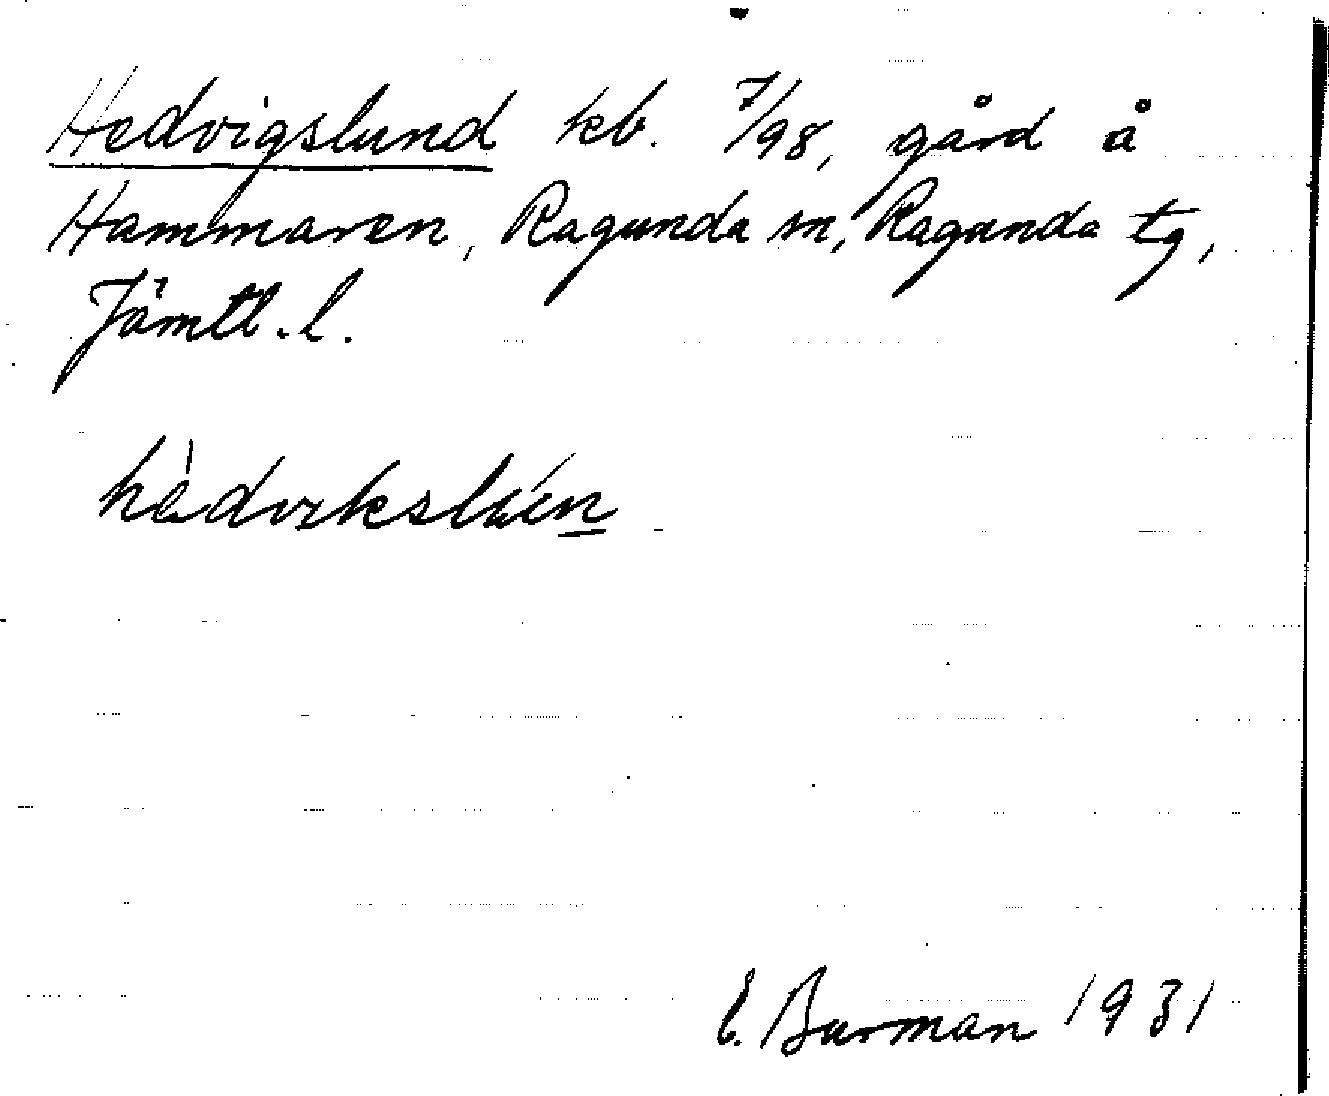 Hedvigslund kb. 7/98, gård å
Hammaren, Ragunda sn, Ragunda tg,
Jämtl. l.
hèdvıkslún
E. Burman 1931